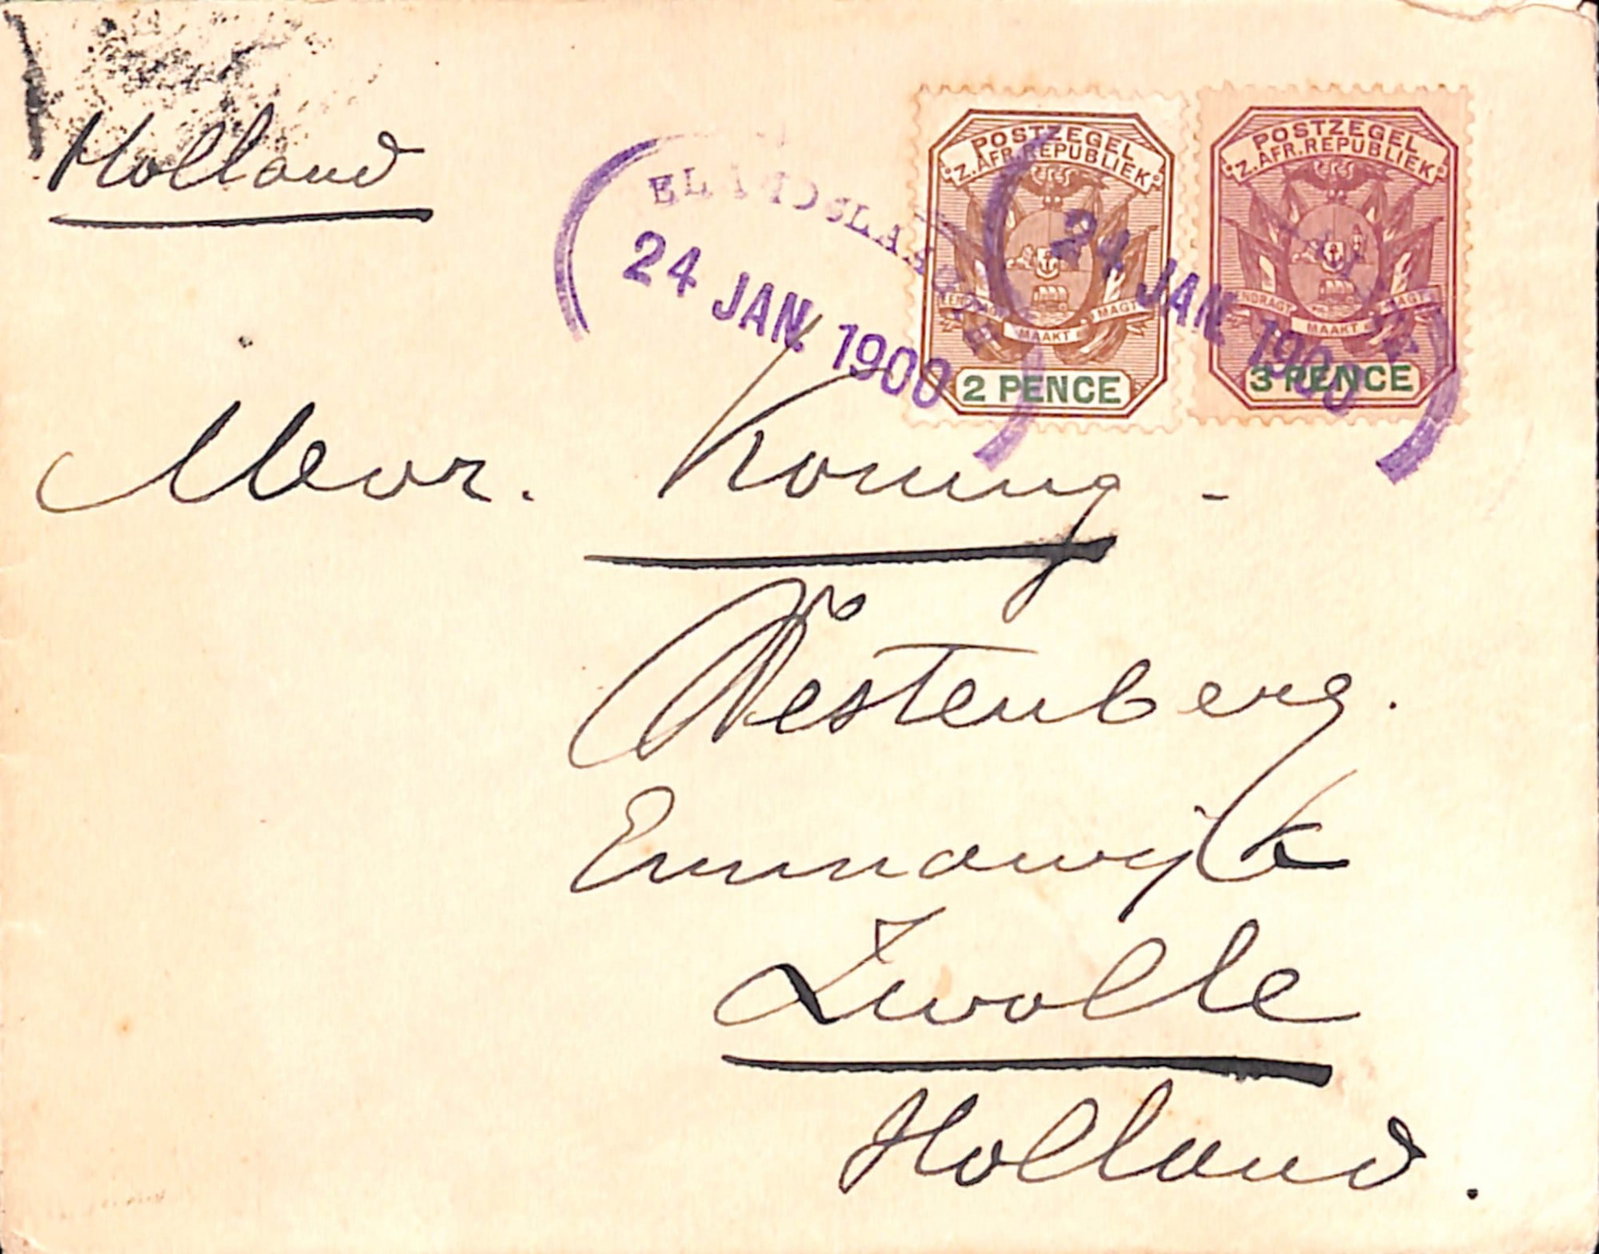 Holland
POSTZEGEL
Z. AFR. REPUBLIEK
MAAKT
MAGT
2 PENCE
POSTZEGEL
Z. AFR. REPUBLIEK
MAAKT
MAGT
3 PENCE
24 JAN. 1900
24 JAN. 1900
Mevr. Koning -
Westenberg.
Emmawijk
Zwolle
Holland.